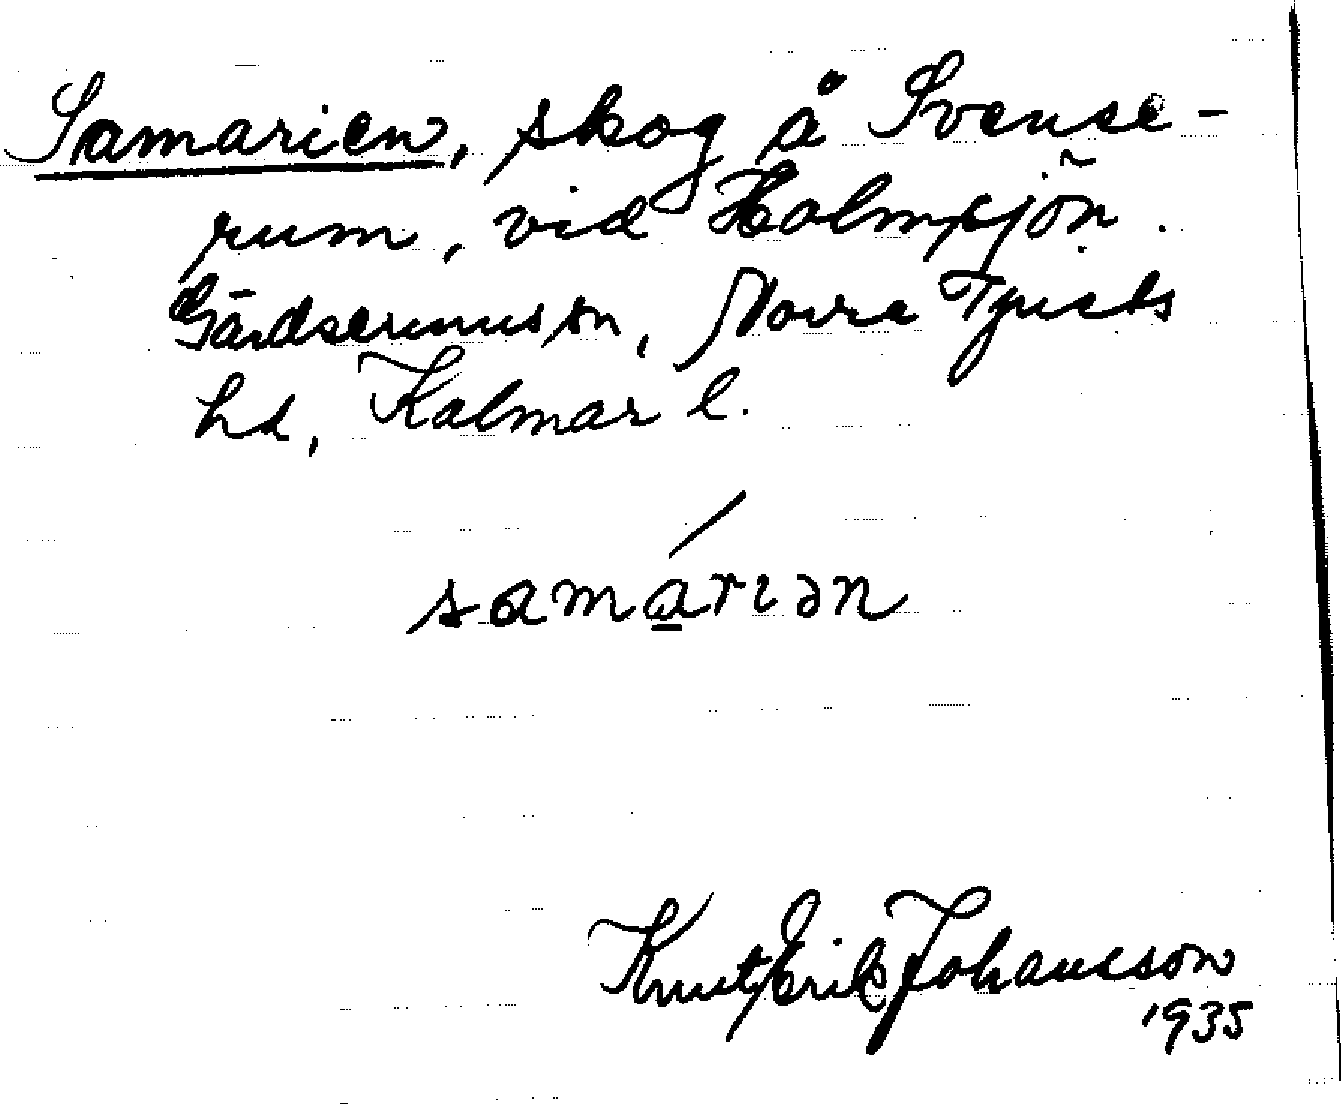 Samarien, skog å Svense-
rum, vid Holmsjön.
Gårdserums sn, Norra Tjusts
hd, Kalmar l.
samariən
Knut Erik Johansson
1935